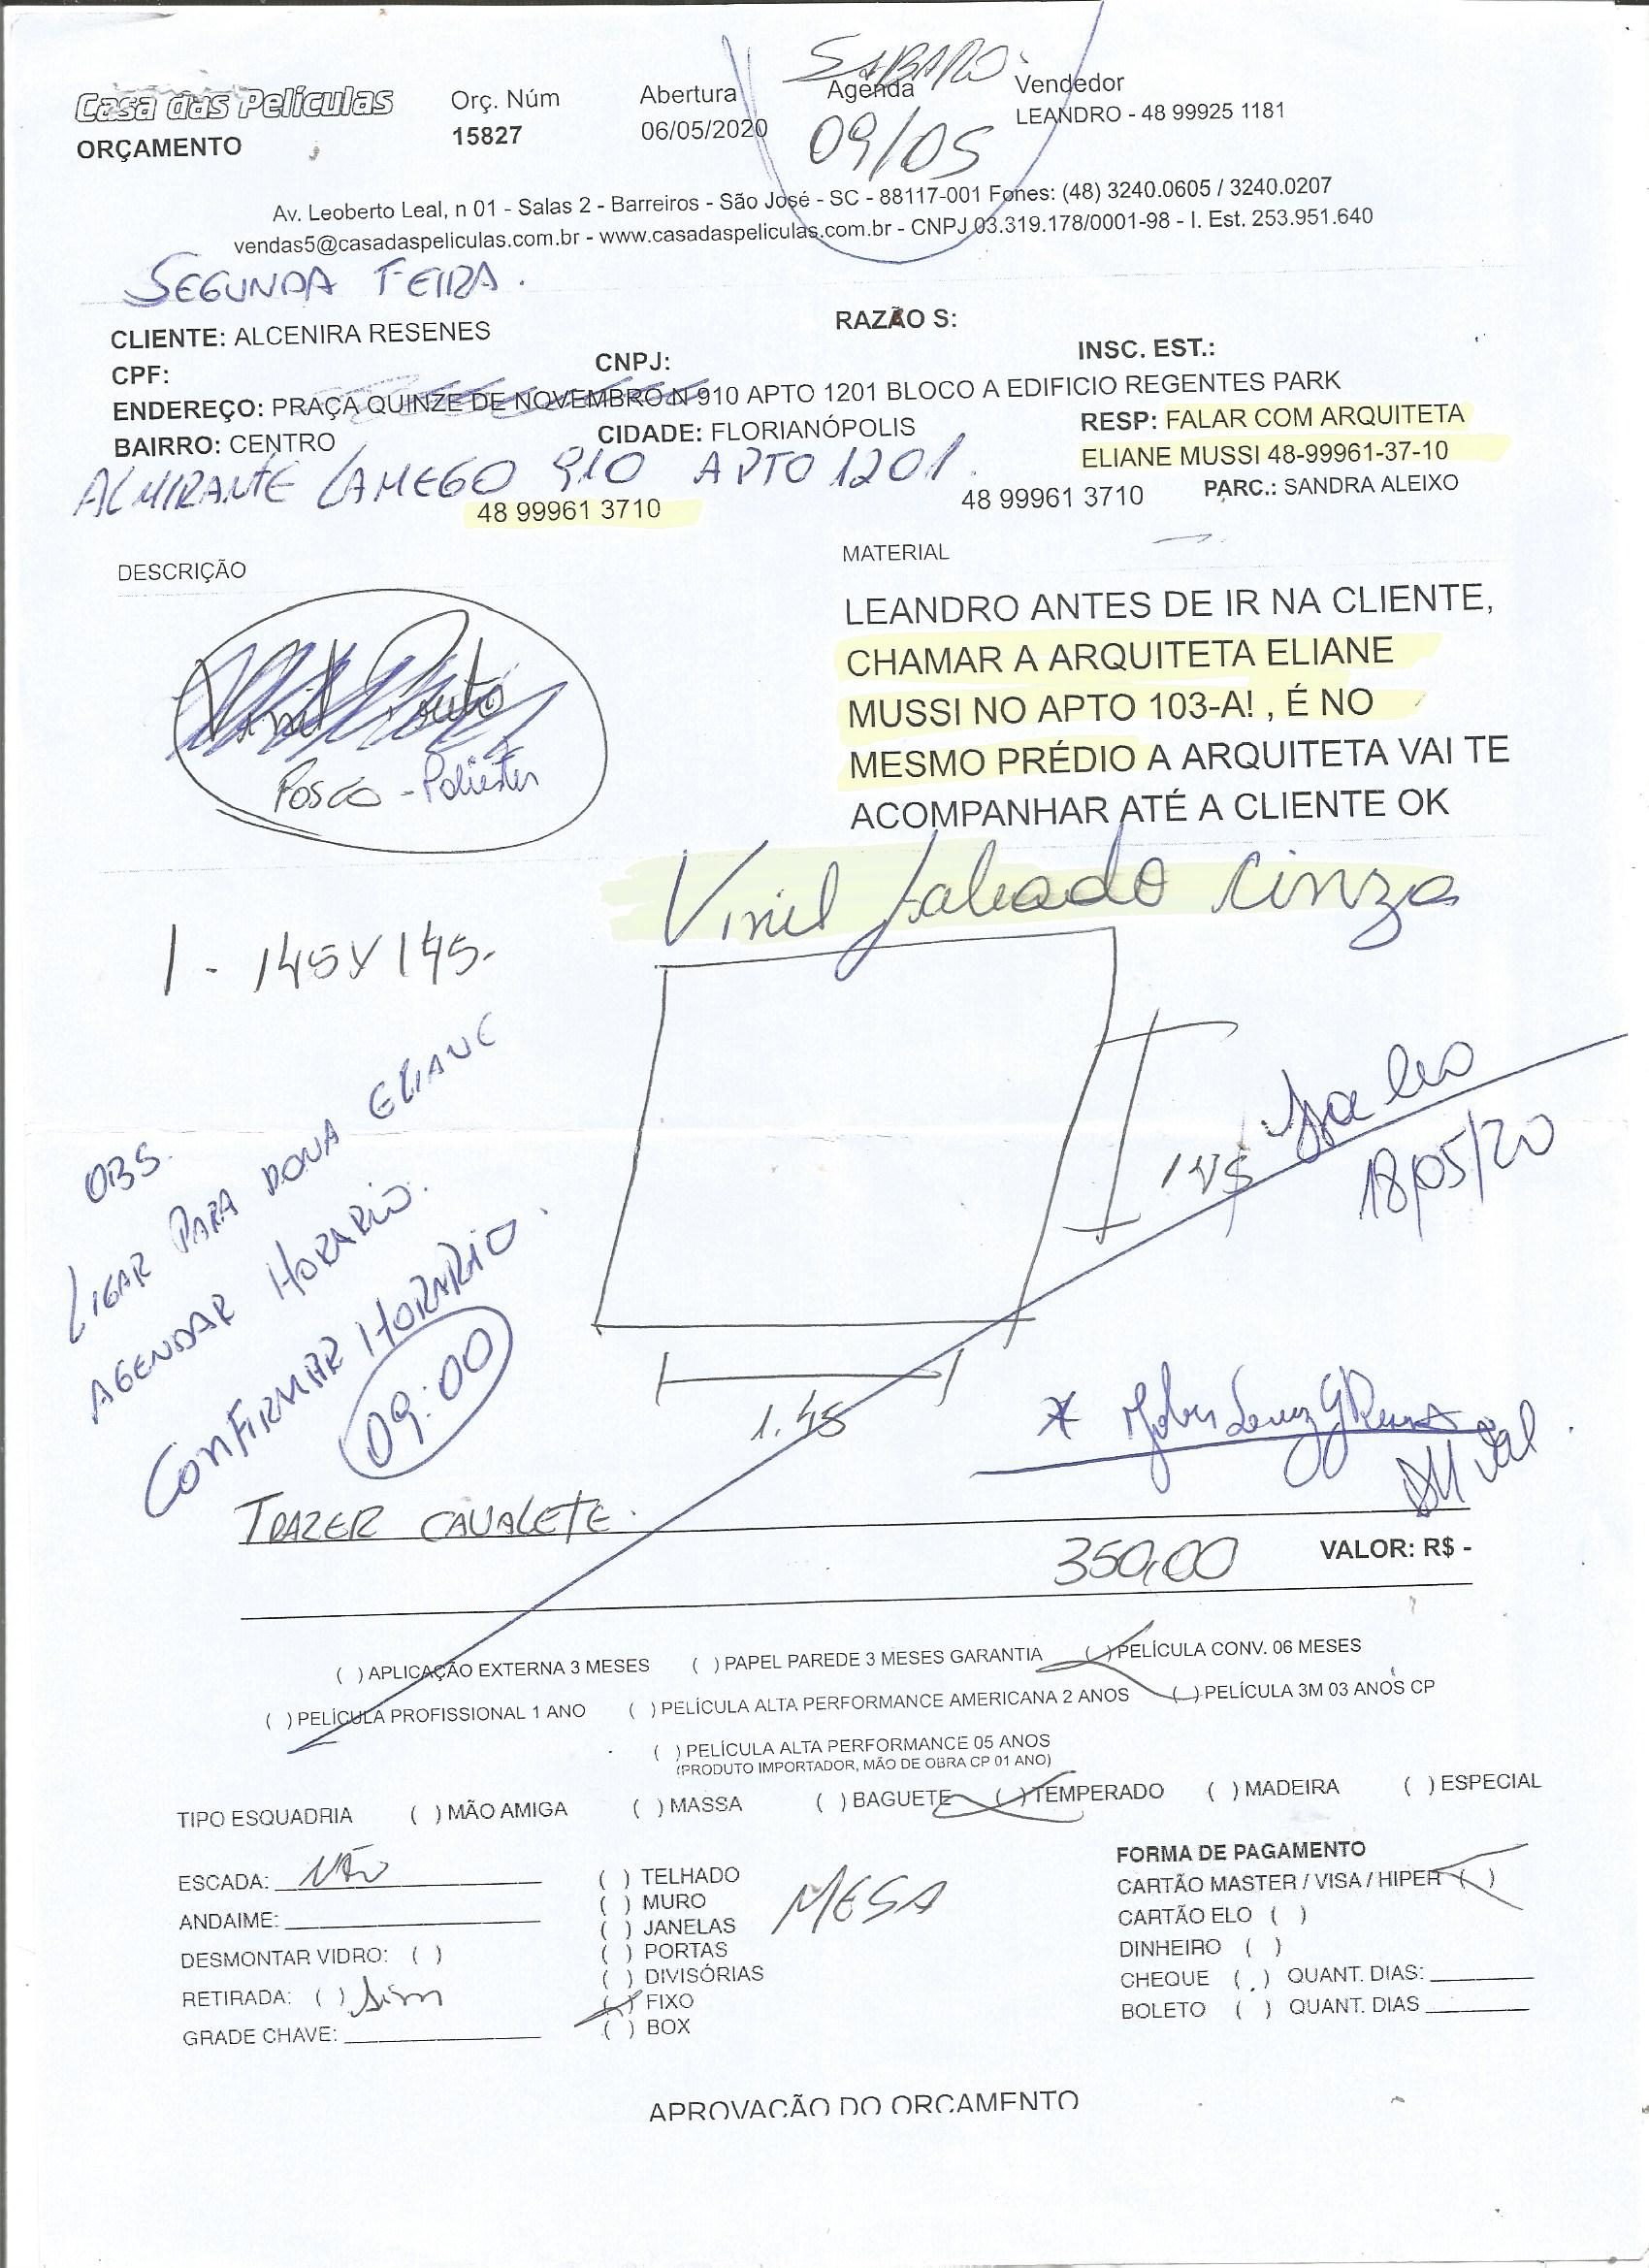 SABADO.
Casa das Películas
ORÇAMENTO
Orç. Núm
15827
Abertura
06/05/2020
Agenda
09/05
Vendedor
LEANDRO - 48 99925 1181
Av. Leoberto Leal, n 01 - Salas 2 - Barreiros - São José - SC - 88117-001 Fones: (48) 3240.0605 / 3240.0207
vendas5@casadaspeliculas.com.br - www.casadaspeliculas.com.br - CNPJ 03.319.178/0001-98 - I. Est. 253.951.640
SEGUNDA FEIRA.
CLIENTE: ALCENIRA RESENES
RAZÃO S:
CPF:
CNPJ:
INSC. EST.:
ENDEREÇO: PRAÇA QUINZE DE NOVEMBRO N 910 APTO 1201 BLOCO A EDIFICIO REGENTES PARK
BAIRRO: CENTRO
CIDADE: FLORIANÓPOLIS
RESP: FALAR COM ARQUITETA
ELIANE MUSSI 48-99961-37-10
ALMIRANTE LAMEGO 910 APTO 1201.
48 99961 3710
48 99961 3710
PARC.: SANDRA ALEIXO
DESCRIÇÃO
MATERIAL
Vinil Preto
FOSCO - Poliester
LEANDRO ANTES DE IR NA CLIENTE,
CHAMAR A ARQUITETA ELIANE
MUSSI NO APTO 103-A! , É NO
MESMO PRÉDIO A ARQUITETA VAI TE
ACOMPANHAR ATÉ A CLIENTE OK
Vinil jateado Cinza
1 - 145 X 145.
OBS.
LIGAR PARA DONA ELIANE
AGENDAR HORARIO.
CONFIRMAR HORARIO.
09:00
145
18/05/20
1.45
TRAZER CAVALETE.
350,00
VALOR: R$ -
( ) APLICAÇÃO EXTERNA 3 MESES ( ) PAPEL PAREDE 3 MESES GARANTIA ( ) PELÍCULA CONV. 06 MESES
( ) PELÍCULA PROFISSIONAL 1 ANO ( ) PELÍCULA ALTA PERFORMANCE AMERICANA 2 ANOS ( ) PELÍCULA 3M 03 ANOS CP
( ) PELÍCULA ALTA PERFORMANCE 05 ANOS
(PRODUTO IMPORTADOR, MÃO DE OBRA CP 01 ANO)
TIPO ESQUADRIA ( ) MÃO AMIGA ( ) MASSA ( ) BAGUETE ( ) TEMPERADO ( ) MADEIRA ( ) ESPECIAL
ESCADA: NÃO
ANDAIME:
DESMONTAR VIDRO: ( )
RETIRADA: ( ) Sim
GRADE CHAVE:
( ) TELHADO
( ) MURO
( ) JANELAS
( ) PORTAS
( ) DIVISÓRIAS
( ) FIXO
( ) BOX
MESA
FORMA DE PAGAMENTO
CARTÃO MASTER / VISA / HIPER ( )
CARTÃO ELO ( )
DINHEIRO ( )
CHEQUE ( ) QUANT. DIAS:
BOLETO ( ) QUANT. DIAS
APROVAÇÃO DO ORÇAMENTO